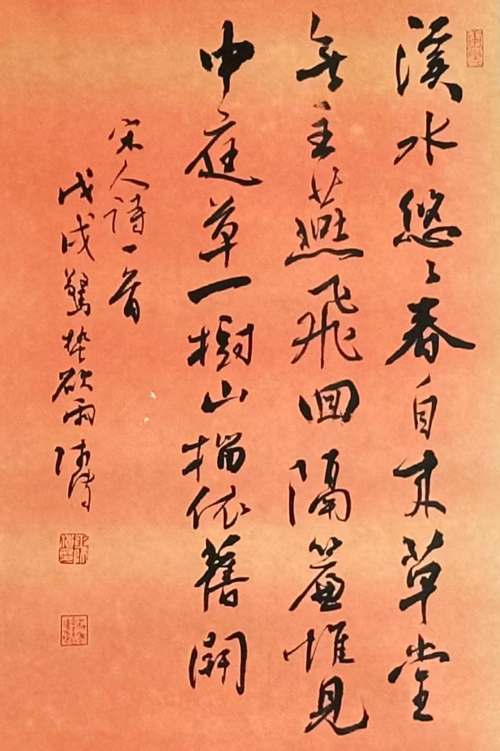 溪水悠々春自来草堂
無主燕飛回隔簾惟見
中庭草一樹山榴依舊開
宋人詩一首
戊戌驚蟄欲雨